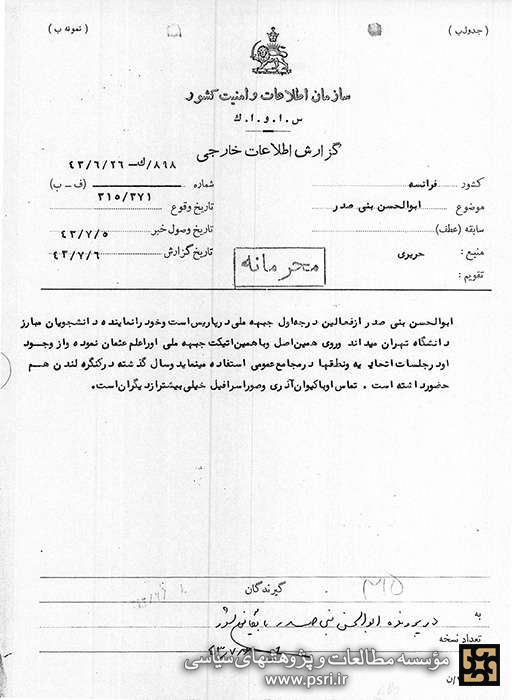 ( جدول ب )
( نمونه ب )
سازمان اطلاعات و امنیت کشور
س . ا . و . ا . ک
گزارش اطلاعات خارجی
کشور فرانسه
۸۹۸/ك–۴۳/۶/۲۶
شماره (ف - ب)
۳۱۵/۳۷۱
موضوع ابوالحسن بنی صدر
تاریخ وقوع
سابقه (عطف) :
تاریخ وصول خبر ۴۳/۷/۵
منبع : حریری
تاریخ گزارش ۴۳/۷/۶
تقویم :
محرمانه
ابوالحسن بنی صدر ازفعالین درجه اول جبهه ملی درپاریس است وخود رانماینده دانشجویان مبارز
دانشگاه تهران میداند وروی همین اصل وباهمین اتیکت جبهه ملی اوراعلم عثمان نموده واز وجود
اودرجلسات اتحادیه ونطقها درمجامع عمومی استفاده مینماید وسال گذشته درکنگره لندن هم
حضورداشته است . تماس اوباکیوان آذری وصوراسرافیل خیلی بیشترازدیگران است.
گیرندگان
۳۱۵
به
در پرونده ابوالحسن بنی صدر بایگانی شود
تعداد نسخه
مؤسسه مطالعات و پژوهشهای سیاسی
www.psri.ir